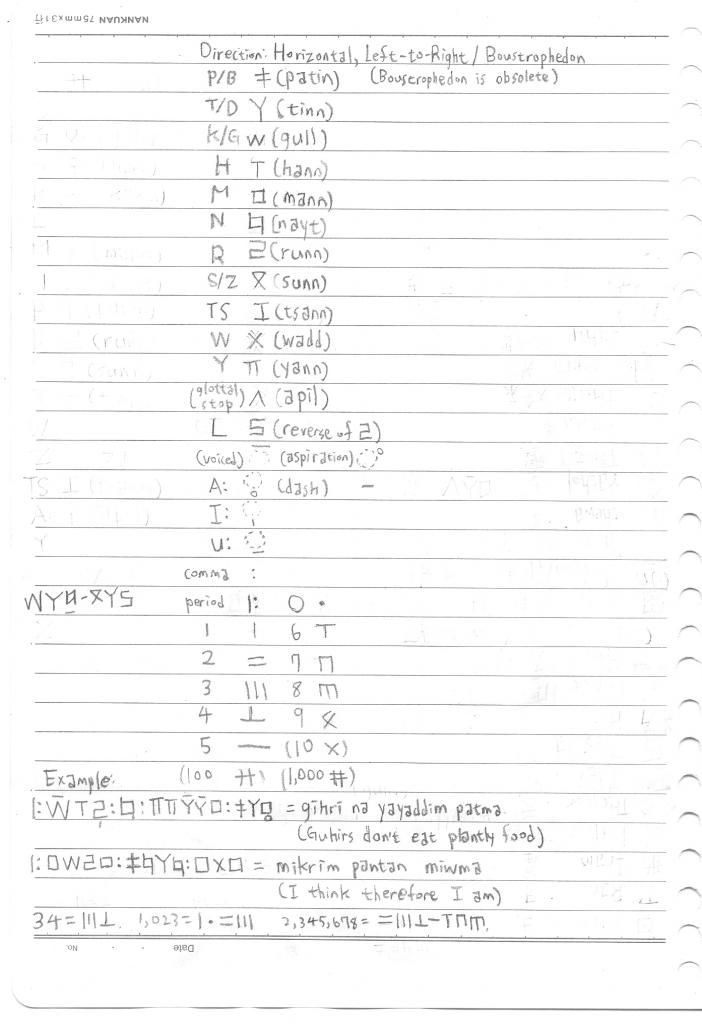 NANKUAN 75mmx31行
Direction: Horizontal, Left-to-Right / Boustrophedon
P/B (patin) (Bouscrophedon is obsolete)
T/D (tinn)
K/G (gull)
H (hann)
M (mann)
N (nayt)
R (runn)
S/Z (sunn)
TS (tsann)
W (wadd)
Y (yann)
(glottal stop) (apil)
L (reverse of)
(voiced) (aspiration)
A: (dash) –
I:
U:
comma :
period |: 0 •
1 | 6 T
2 = 7 Π
3 ||| 8
4 ⊥ 9
5 — (10 X)
(100) (1,000)
Example:
= gihri na yayaddim patma.
(Guhirs don't eat plantly food)
= mikrim pantan miwma
(I think therefore I am)
34=|||⊥. 1,023=|•=||| 2,345,678= =|||⊥–TΠ
No. Date